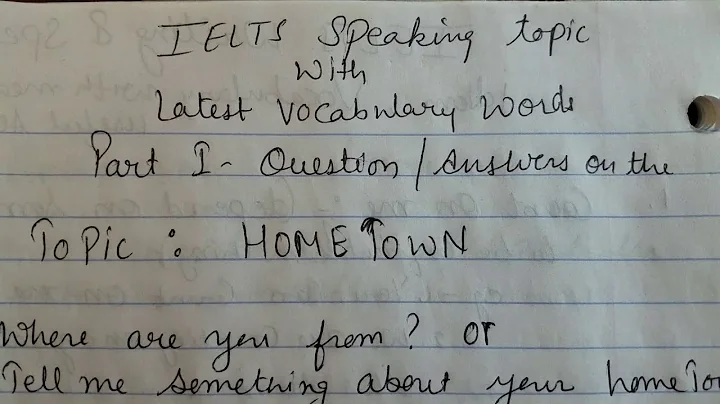 IELTS Speaking topic
with
Latest Vocabulary Words
Part I - Question / Answers on the
Topic : HOMETOWN
Where are you from ? or
Tell me something about your homeTo